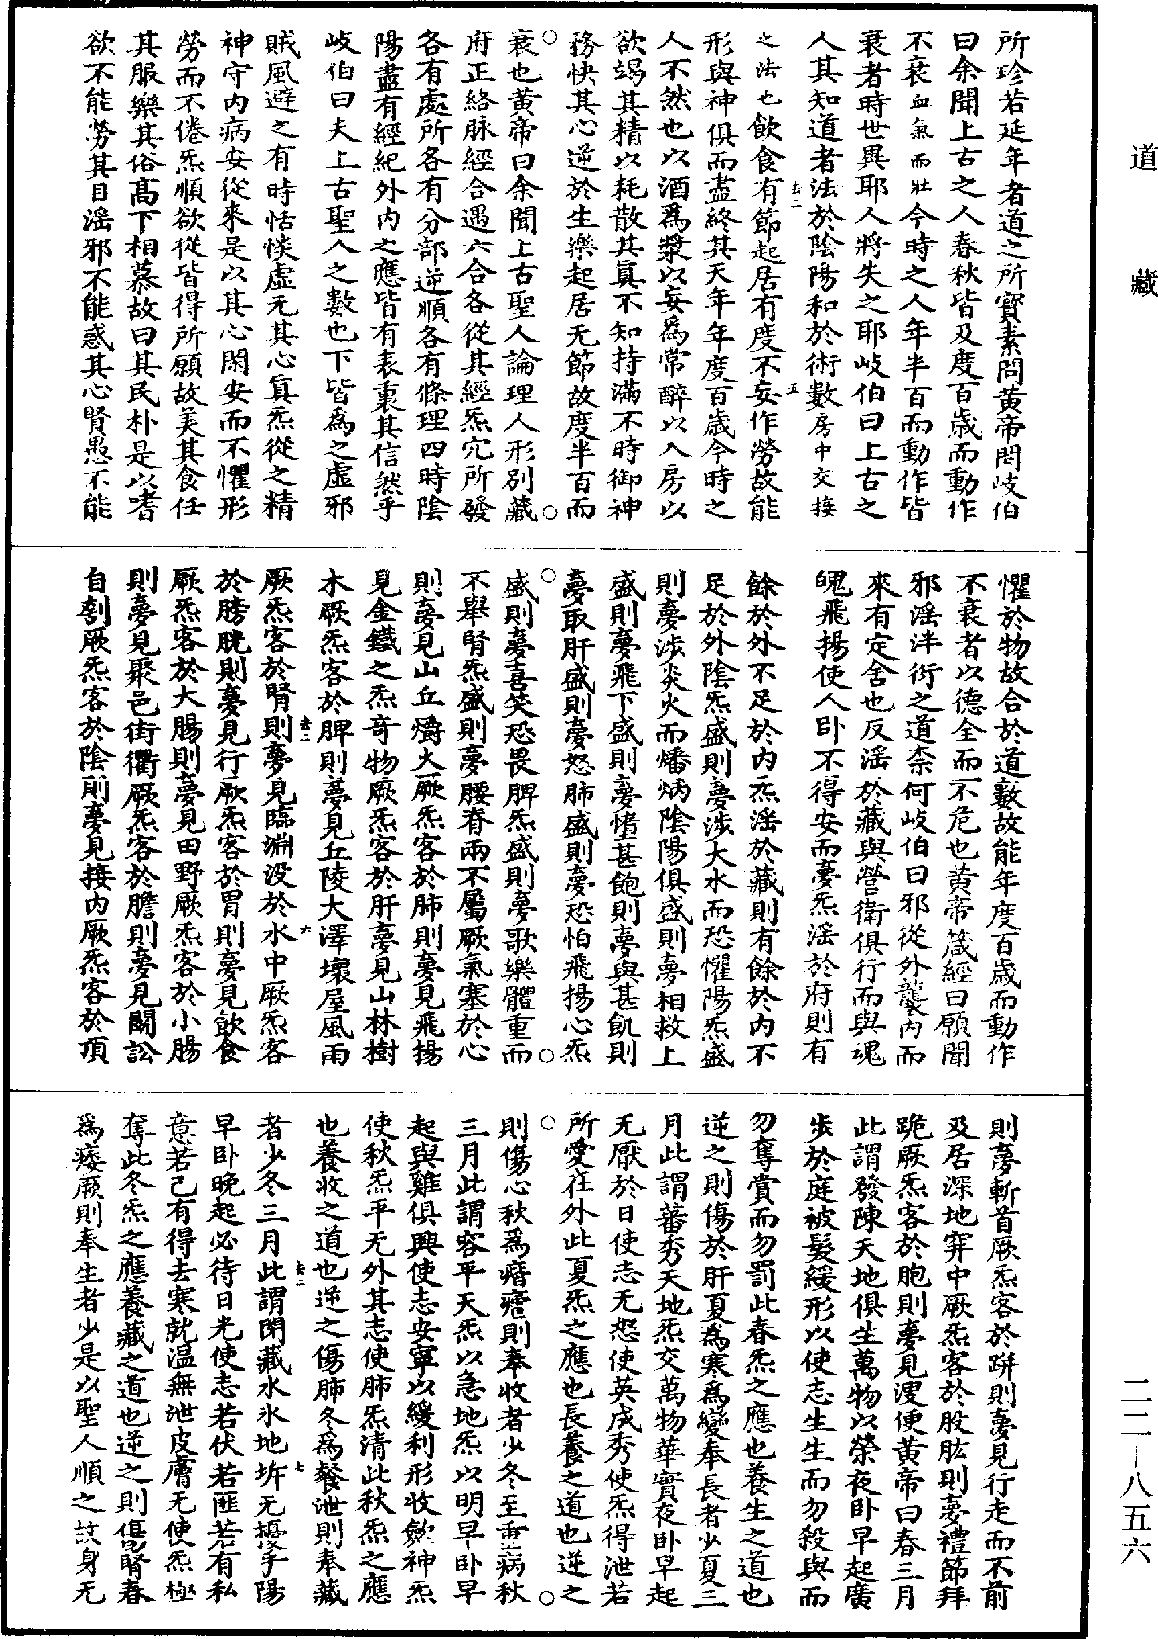 道藏
二二—八五六
所珍若延年者道之所寶素問黃帝問岐伯
曰余聞上古之人春秋皆及度百歲而動作
不衰血氣而壯今時之人年半百而動作皆
衰者時世異耶人將失之耶岐伯曰上古之
人其知道者法於陰陽和於術數房中交接
之法也飲食有節起居有度不妄作勞故能
形與神俱而盡終其天年年度百歲今時之
人不然也以酒為漿以妄為常醉以入房以
欲竭其精以耗散其真不知持滿不時御神
務快其心逆於生樂起居无節故度半百而
衰也黃帝曰余聞上古聖人論理人形別藏
府正絡脉經合遇六合各從其經炁穴所發
各有處所各有分部逆順各有條理四時陰
陽盡有經紀外內之應皆有表裏其信然乎
岐伯曰夫上古聖人之數也下皆為之虛邪
賊風避之有時恬惔虛无其心真炁從之精
神守內病安從來是以其心閑安而不懼形
勞而不倦炁順欲從皆得所願故美其食任
其服樂其俗高下相慕故曰其民朴是以嗜
欲不能勞其目淫邪不能惑其心賢愚不能
懼於物故合於道數故能年度百歲而動作
不衰者以德全而不危也黃帝箴經曰願聞
邪淫泮衍之道柰何岐伯曰邪從外襲內而
來有定舍也反淫於藏與營衛俱行而與魂
魄飛揚使人卧不得安而夢炁淫於府則有
餘於外不足於內炁淫於藏則有餘於內不
足於外陰炁盛則夢涉大水而恐懼陽炁盛
則夢涉炎火而燔焫陰陽俱盛則夢相救上
盛則夢飛下盛則夢墮甚飽則夢與甚飢則
夢取肝盛則夢怒肺盛則夢恐怕飛揚心炁
盛則夢喜笑恐畏脾炁盛則夢歌樂體重而
不舉腎炁盛則夢腰脊兩不屬厥氣塞於心
則夢見山丘爝火厥炁客於肺則夢見飛揚
見金鐵之炁奇物厥炁客於肝夢見山林樹
木厥炁客於脾則夢見丘陵大澤壞屋風雨
厥炁客於腎則夢見臨淵沒於水中厥炁客
於膀胱則夢見行厥炁客於胃則夢見飲食
厥炁客於大腸則夢見田野厥炁客於小腸
則夢見聚邑街衢厥炁客於膽則夢見鬭訟
自刳厥炁客於陰則夢見接內厥炁客於頂
則夢斬首厥炁客於跰則夢見行走而不前
及居深地穽中厥炁客於股肱則夢禮節拜
跪厥炁客於胞則夢見溲便黃帝曰春三月
此謂發陳天地俱生萬物以榮夜卧早起廣
步於庭被髮緩形以使志生生而勿殺與而
勿奪賞而勿罰此春炁之應也養生之道也
逆之則傷於肝夏為寒為變奉長者少夏三
月此謂蕃秀天地炁交萬物華實夜卧早起
无厭於日使志无怒使英成秀使炁得泄若
所愛在外此夏炁之應也長養之道也逆之
則傷心秋為痎瘧則奉收者少冬至重病秋
三月此謂容平天炁以急地炁以明早卧早
起與雞俱興使志安寧以緩利形收斂神炁
使秋炁平无外其志使肺炁清此秋炁之應
也養收之道也逆之傷肺冬為餮泄則奉藏
者少冬三月此謂閉藏水氷地坼无擾乎陽
早卧晚起必待日光使志若伏若匪若有私
意若己有得去寒就温無泄皮膚无使炁極
奪此冬炁之應養藏之道也逆之則傷腎春
為痿厥則奉生者少是以聖人順之故身无